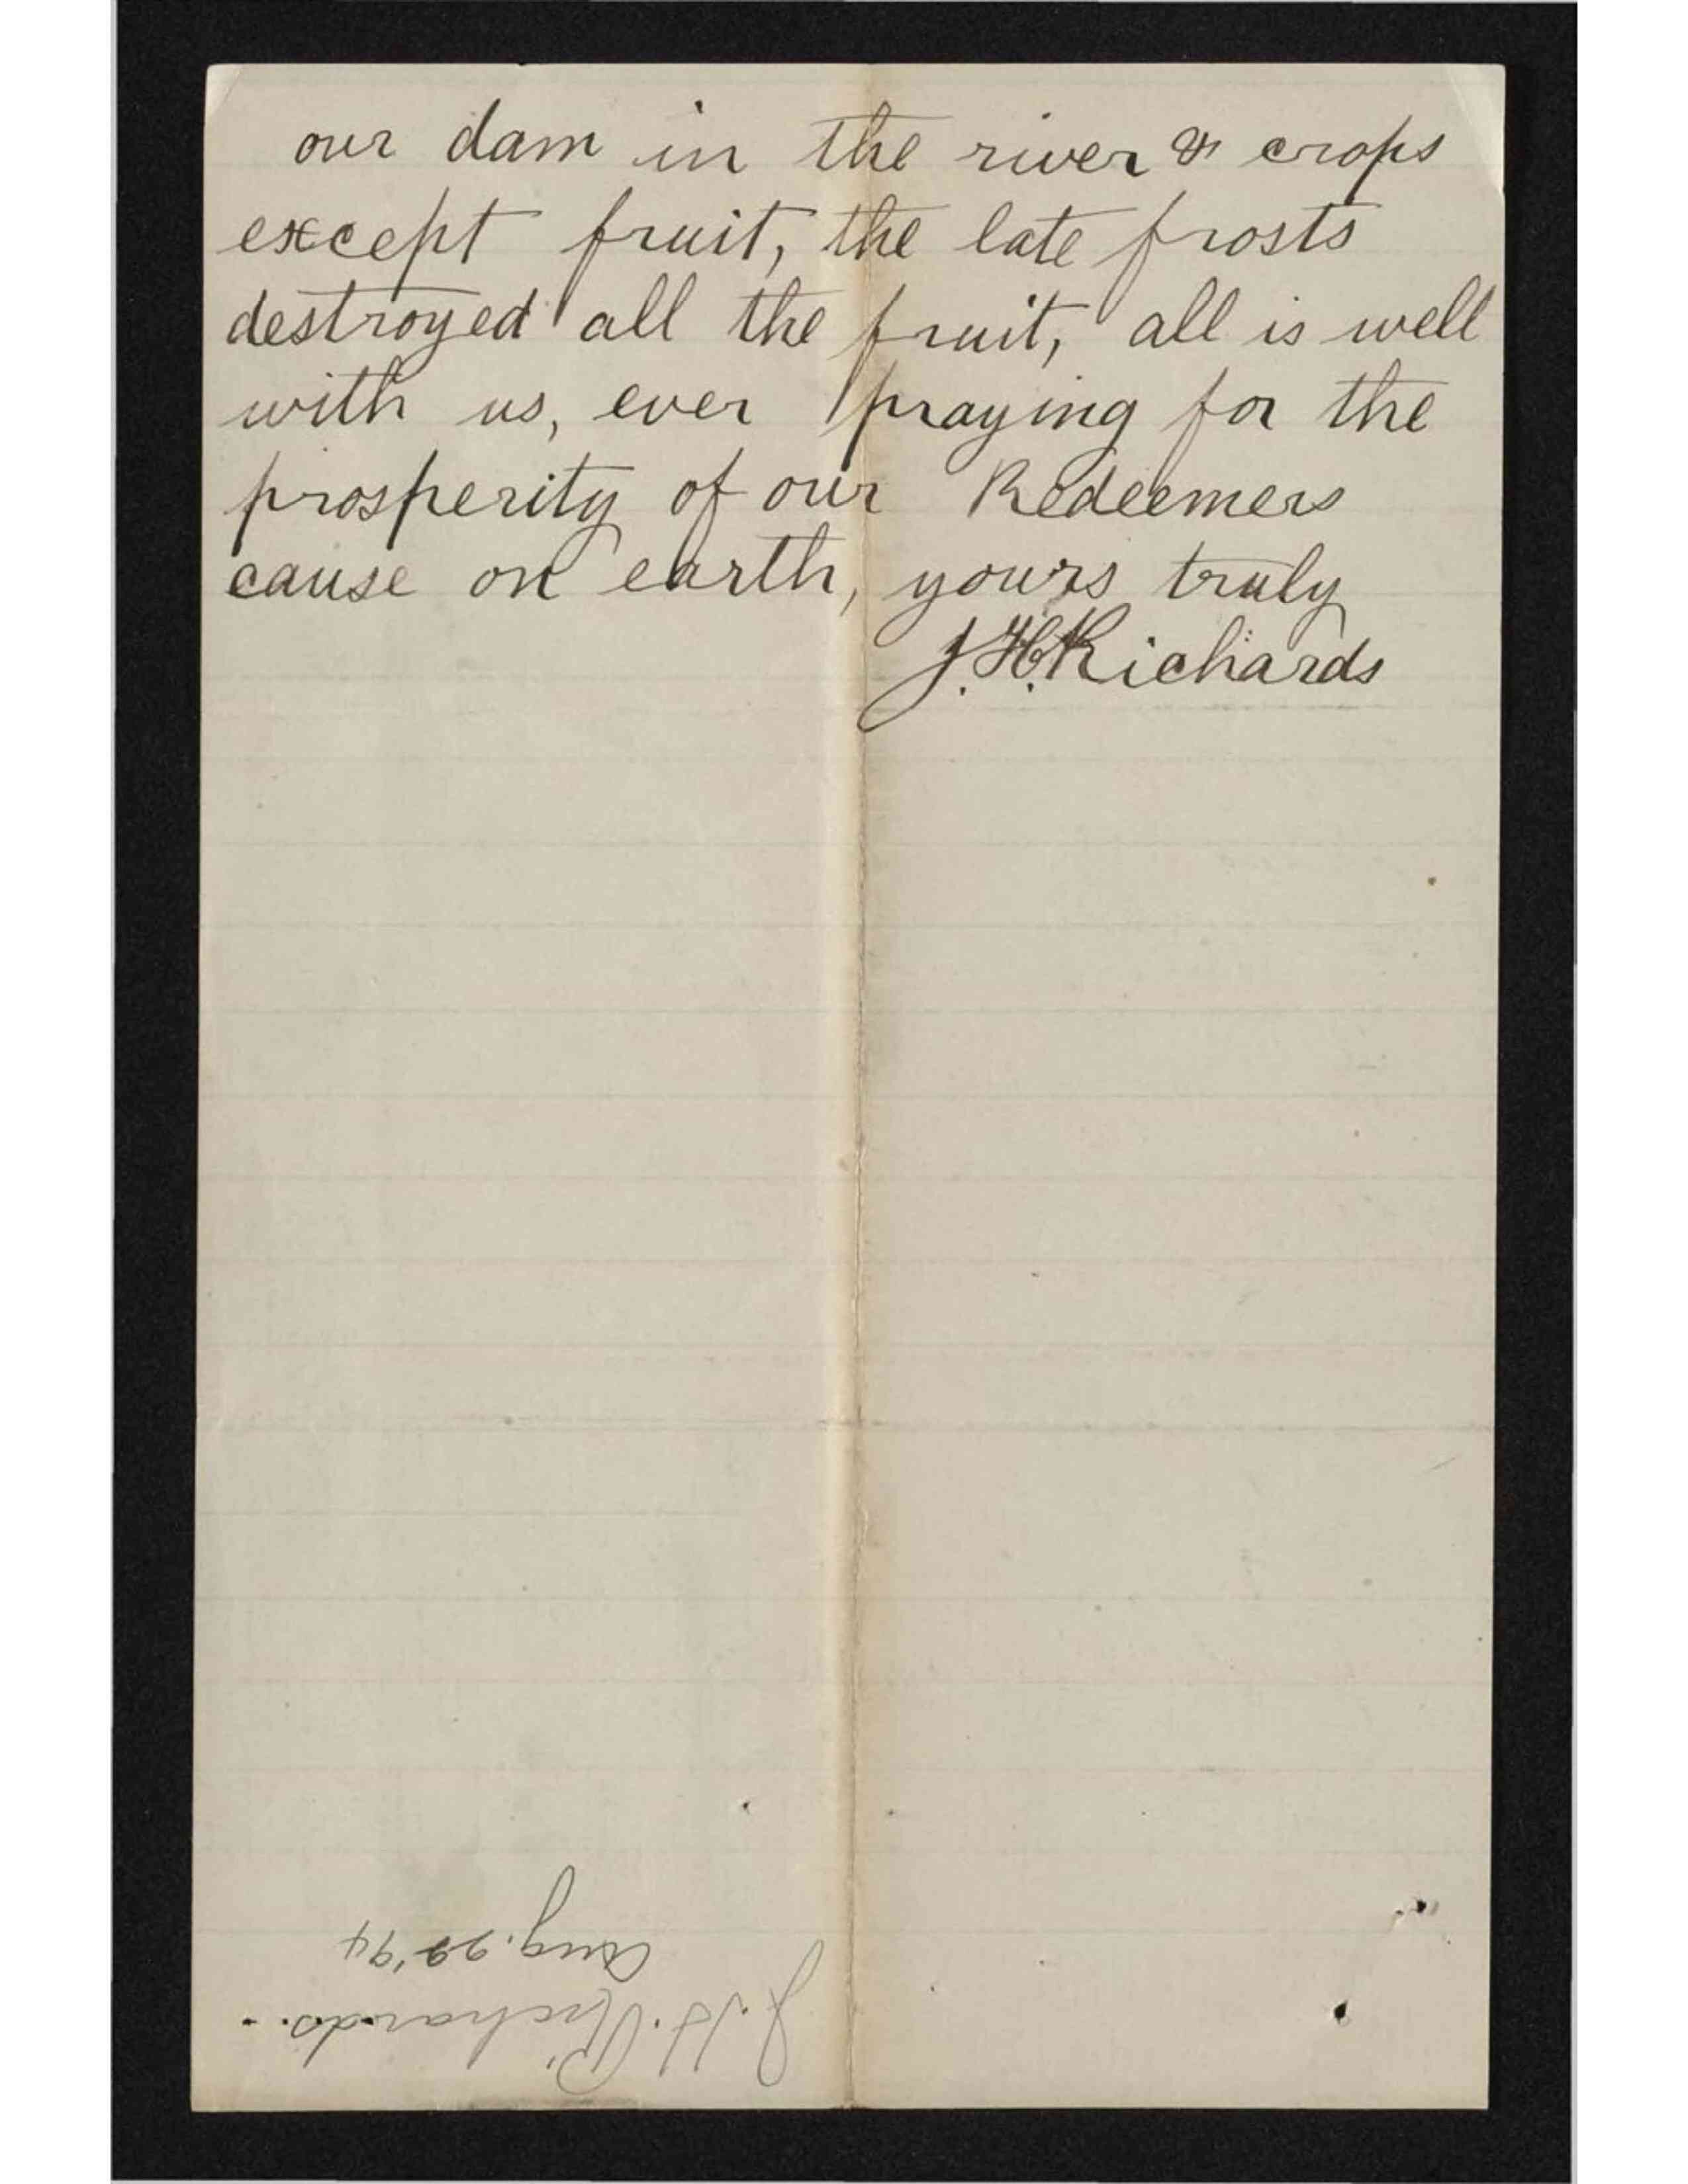 our dam in the river & crops
except fruit, the late frosts
destroyed all the fruit, all is well
with us, ever praying for the
prosperity of our Redeemers
cause on earth, yours truly
J. H. Richards
J. H. Richards.
Aug. 22 '94